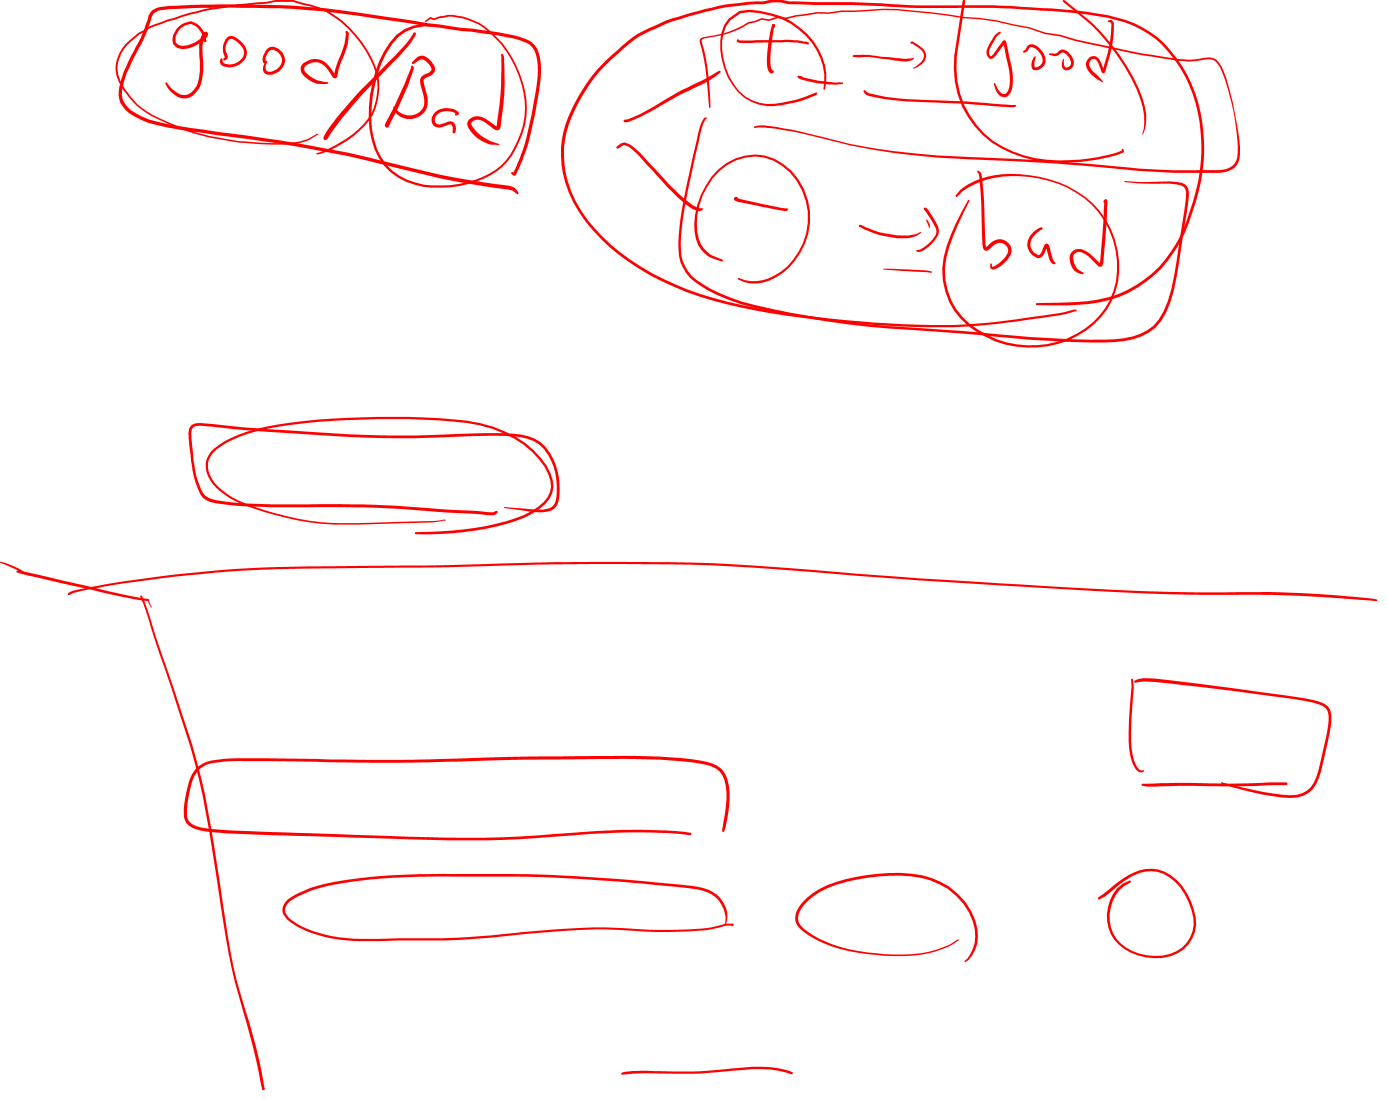 good/Bad
+ → good
- → bad